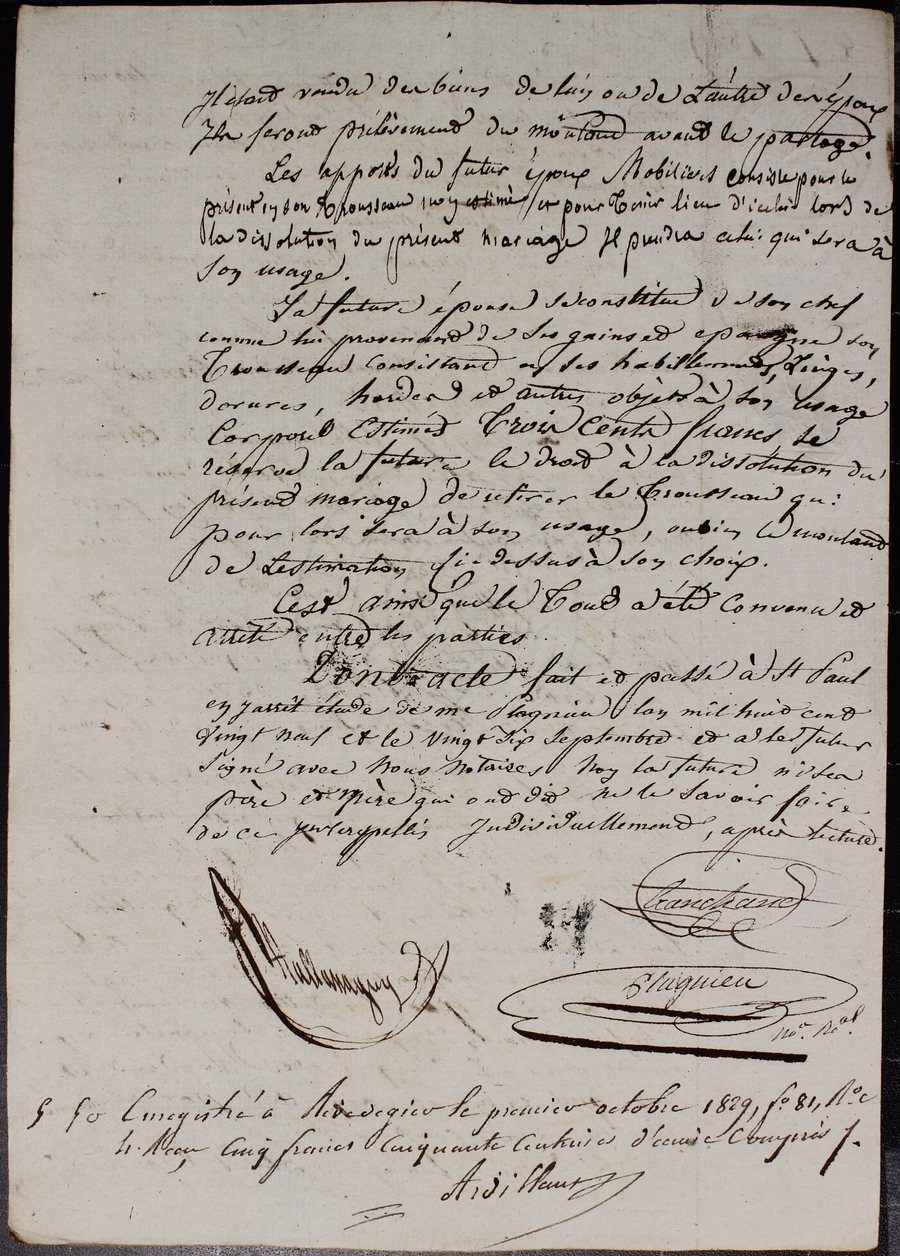 Il étoit vendu des biens de lun ou de Lautre des époux
Ils feront prélèvement du montand avant le partage.
Les apports du futur époux Mobiliers consiste pour le
présent en son Trousseau non estimé et pour Tenir lieu d'icelui lors de
la dissolution du présent mariage Il prendra celui qui sera à
son usage.
La future épouse se constitue de son chef
comme lui provenand de ses gains et epargne son
Trousseau consistand en ses habillemens, Linges,
dorures, hardes et autres objets à son usage
Corporel Estimés Trois Cents francs se
réserve la future le droit à la dissolution du
présend mariage de retirer le Trousseau qui
pour lors sera à son usage, ou bien le montand
de Lestimation ci-dessus à son choix.
Cest ainsi que le Tout a été Convenu et
arreté entre les parties.
Dont acte fait et passé à St Paul
en jarrêt étude de me Plagnieu lan mil huit cent
vingt neuf et le vingt six Septembre et a le futur
Signé avec Nous Notaires Non la future ni sea
père et mère qui ont dit ne le Savoir faire
de ce interpellés Individuellement, après lecture.
Tranchand
Plagnieu
Nore. Roal.
5 50 Enregistré à Rivedegier le premier octobre 1829, fo. 81, Ro. c
4. Reçu Cinq francs Cinquante Centimes d'ecime Compris